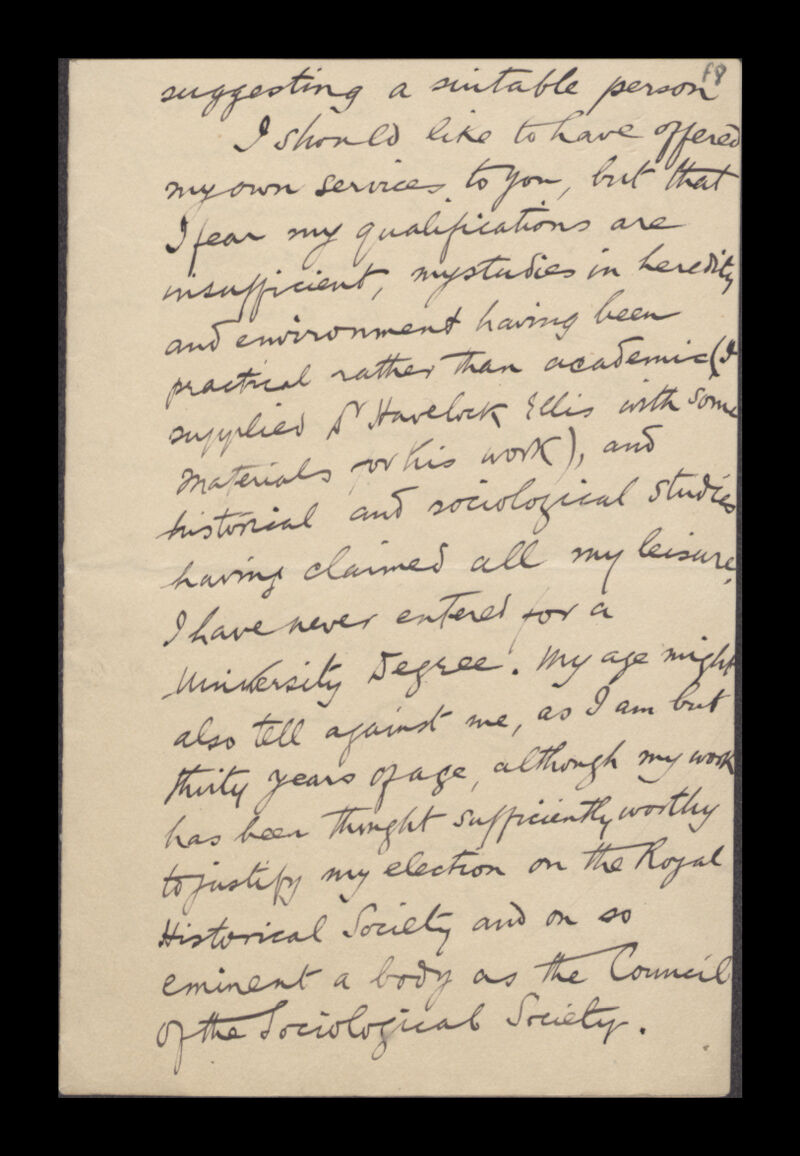 f8
suggesting a suitable person
I should like to have offered
my own services to you, but that
I fear my qualifications are
insufficient, my studies in heredity
and environment having been
practical rather than academic (I
supplied Dr Havelock Ellis with some
materials for his work), and
historical and sociological studies
having claimed all my leisure,
I have never entered for a
University Degree. My age might
also tell against me, as I am but
thirty years of age, although my work
has been thought sufficiently worthy
to justify my election on the Royal
Historical Society and on so
eminent a body as the Council
of the Sociological Society.